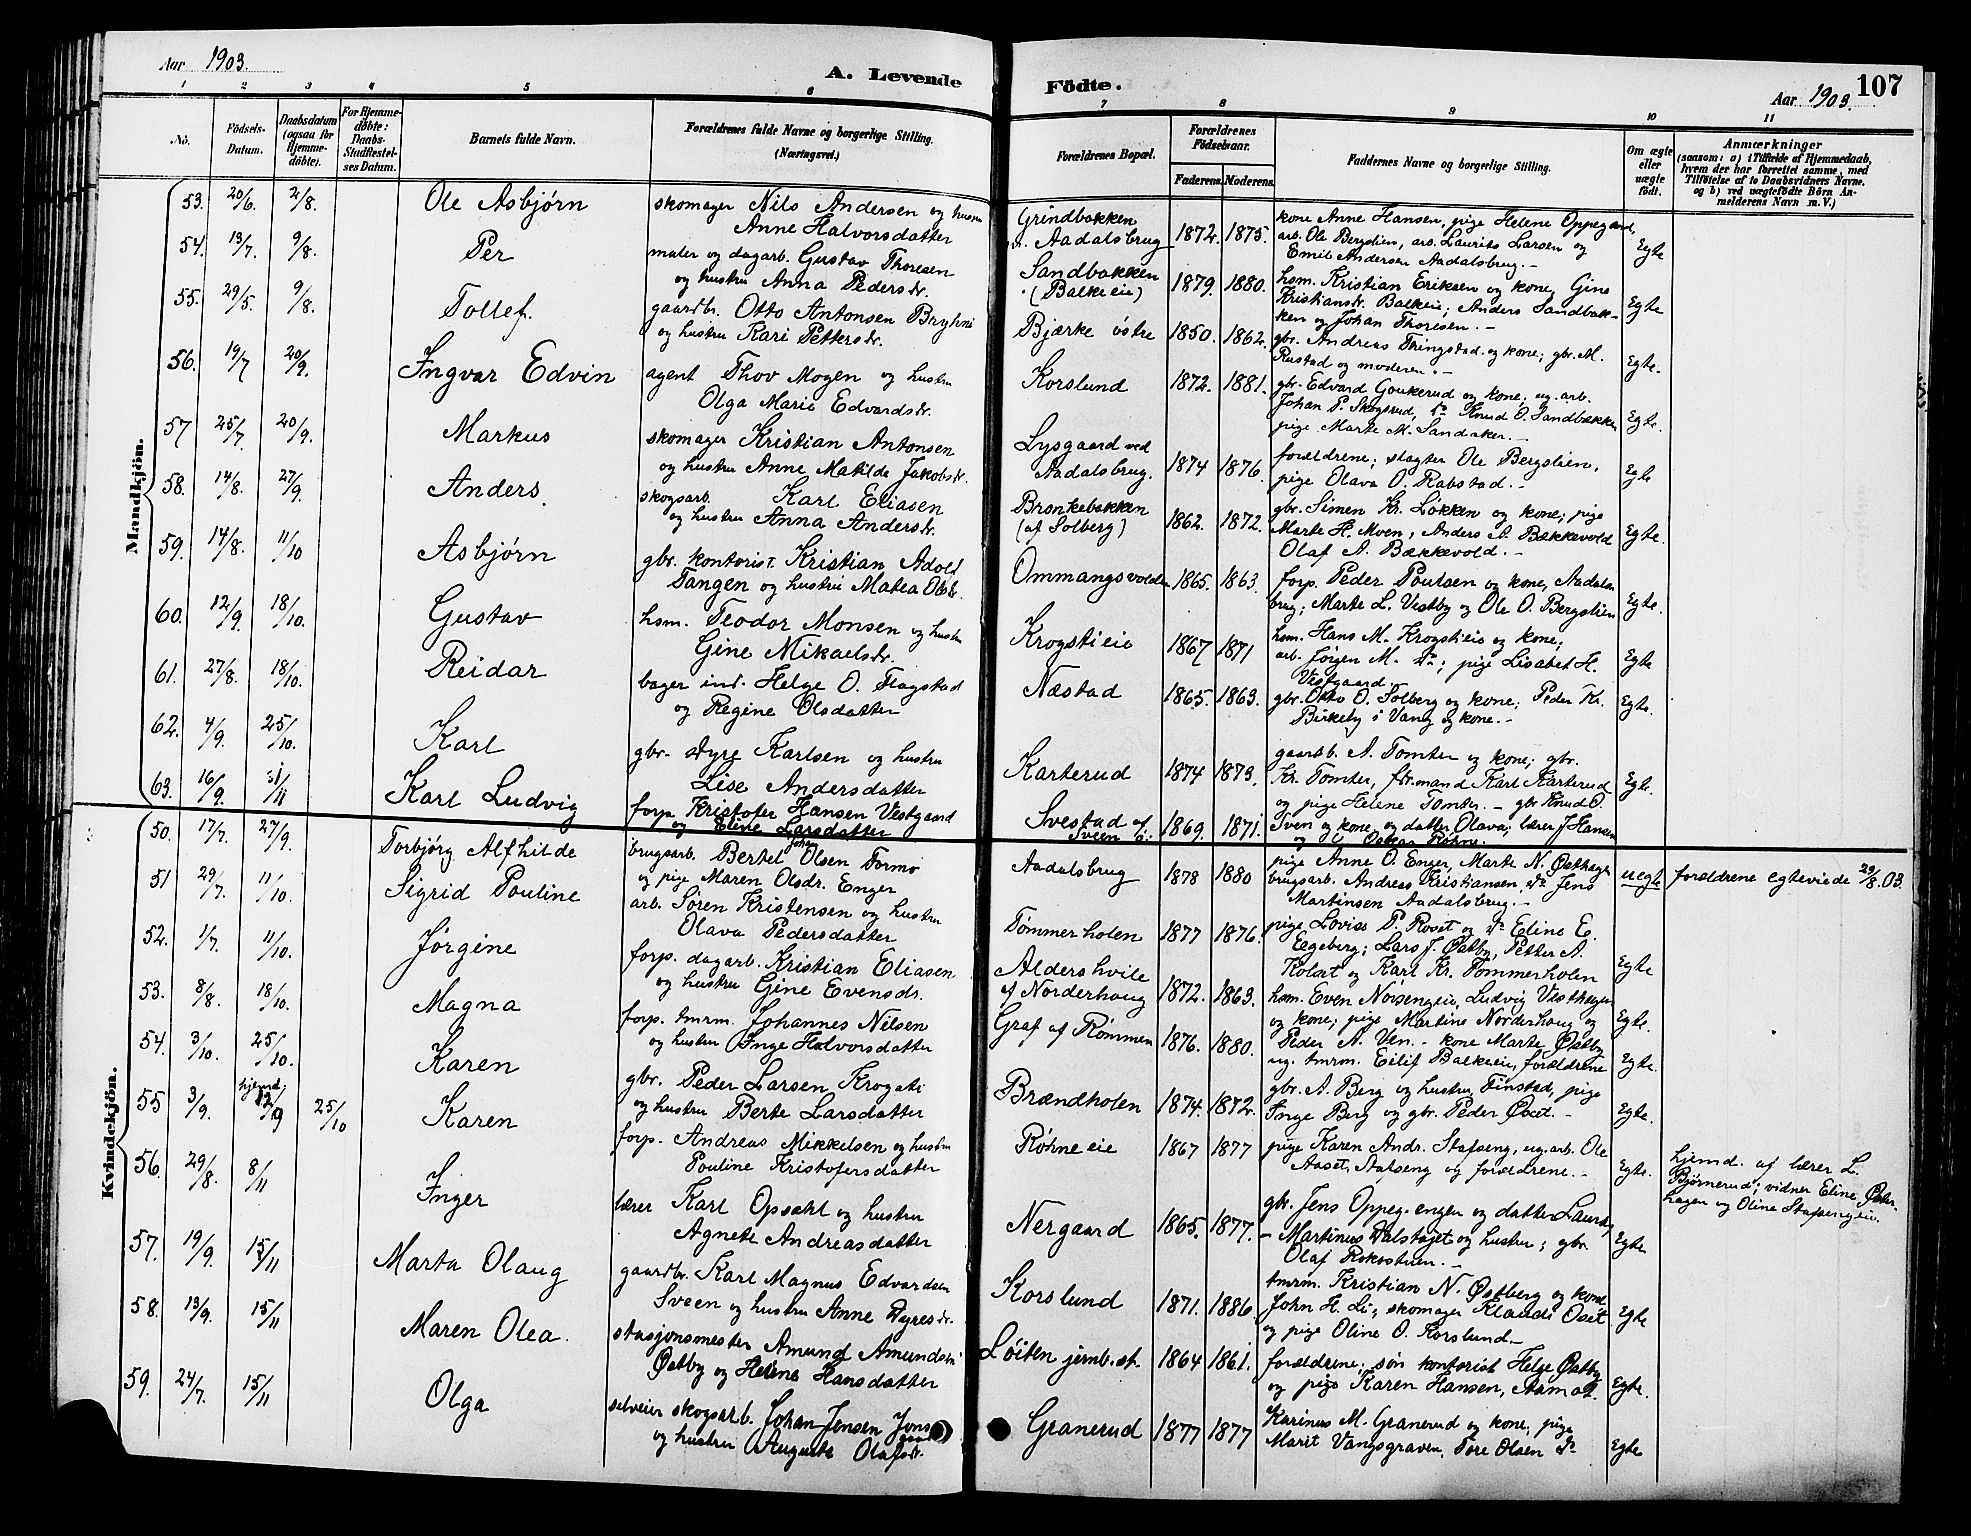 Aar 1903.
A. Levende
Födte.
Aar 1903.
107
1 2 3 4 5 6 7 8 9 10 11
No.
Födsels-
Datum.
Daabsdatum
(ogsaa for
Hjemme-
döbte).
For Hjemme-
döbte:
Daabs-
Stadfæstel-
ses Datum.
Barnets fulde Navn.
Forældrenes fulde Navne og borgerlige Stilling.
(Næringsvei.)
Forældrenes Bopæl.
Forældrenes
Födselsaar.
Faderens. Moderens.
Faddernes Navne og borgerlige Stilling.
Om ægte
eller
uægte
födt.
Anmærkninger
(saasom: a) i Tilfælde af Hjemmedaab,
hvem der har forrettet samme, med
Tilföielse af to Daabsvidners Navne.
og b) ved uægtefödte Börn An-
melderens Navn m. V.)
Mandkjön.
53. 20/6. 2/8. Ole Asbjørn
skomager Nils Andersen og hustru
Anne Halvorsdatter
Grindbakken
v. Aadalsbrug 1872. 1875.
kone Anne Hansen, pige Helene Oppegaard,
arb. Ole Bergslien, arb. Laurits Larsen og
Emil Andersen Aadalsbrug.-
Egte
54. 13/7. 9/8. Per
maler og dagarb. Gustav Thoresen
og hustru Anna Pedersdr.
Sandbakken
(Balkeeie) 1879. 1880.
hsm. Kristian Eriksen og kone, Gine
Kristiansdr. Balkeie; Anders Sandbak-
ken og Johan Thoresen.-
Egte
55. 29/5. 9/8. Tollef.
gaardbr. Otto Antonsen Bryhni
og hustru Kari Pettersdr.
Bjærke østre 1850. 1862.
gbr. Andreas Thingstad og kone; gbr. M.
Rustad og moderen.-
Egte.
56. 19/7 20/9. Ingvar Edvin
agent Thov Mogen og hustru
Olga Marie Edvardsdr.
Korslund 1872. 1881.
gbr. Edvard Goukerud og kone; ug. arb.
Johan P. Skogsrud, do Knud O. Sandbækken
pige Marte M. Sandaker.-
Egte.
57 25/7 20/9. Markus
skomager Kristian Antonsen
og hustru Anne Matilde Jakobsdr.
Lysgaard ved
Aadalsbrug. 1874 1876.
forældrene; slagter Ole Bergslien,
pige Olava O. Rabstad.-
Egte
58. 14/8. 27/9. Anders.
skogsarb. Karl Eliasen
og hustru Anna Andersdr.
Bronkebakken
(af Solberg) 1862. 1872.
gbr. Simen Kr. Løkken og kone; pige
Marte H. Moen, Anders A. Bækkevold
Olaf A. Bækkevold.-
Egte.
59. 14/8. 11/10 Asbjørn
gbr. kontorist Kristian Adolf
Tangen og hustru Matea Olsdr.
Ommangsvolden 1865. 1863.
forp. Peder Poulsen og kone, Aadals
brug; Marte L. Vestby og Ole O. Bergslien
Egte.
60. 12/9. 18/10. Gustav
hsm. Teodor Monsen og hustru
Gine Mikaelsdr.
Krogstieie 1867 1871
hsm. Hans M. Krogstieie og kone;
arb. Jørgen M. do; pige Lisabet H.
Vestgaard.
Egte
61. 27/8. 18/10. Reidar
bager ind. Helge O. Flagstad
og Regine Olsdatter
Næstad 1865. 1863.
gbr. Otto O. Solberg og kone; Peder Kr.
Birkeby i Vang og kone.-
Egte.
62. 4/9. 25/10. Karl
gbr. Dyre Karlsen og hustru
Lise Andersdatter
Karterud 1874 1873.
gaardb. A. Tomter og kone; gbr.
Kr. Tomter, formand Karl Karterud
og pige Helene Tomter.-
Egte.
63. 16/9. 1/11 Karl Ludvig
forp. Kristofer Hansen Vestgaard
og Eline Larsdatter
Svestad af
Sveen ø. 1869. 1871.
gbr. Knud O.
Sven og kone, og datter Olava; lærer J. Hansen
og Oskar Røhne.
Kvindekjön.
50. 17/7. 27/9. Torbjørg Alfhilde
brugsarb. Bertel Johan Olsen Formo
og pige Maren Olsdr. Enger
Aadalsbrug 1878 1880
pige Anne O. Enger, Marte N. Østhagen
brugsarb. Andreas Kristiansen, do Jens
Martinsen Aadalsbrug.-
uegte forældrene egteviede 29/8.03.
51 29/7. 11/10. Sigrid Pouline
arb. Søren Kristensen og hustru
Olava Pedersdatter
Tømmerholen 1877 1876.
pige Lovise P. Roset og do Eline E.
Egeberg; Lars J. Østby, Petter A.
Holset og Karl Kr. Tømmerholen
Egte
52. 1/7. 11/10. Jørgine
forp. dagarb. Kristian Eliasen
og hustru Gine Evensdr.
Aldershvile
af Norderhaug 1872. 1863.
hsm. Even Norsengeie, Ludvig Vesthagen
og kone; pige Martine Norderhaug og
Peder A. Ven.-
Egte.
53. 8/8. 18/10. Magna
forp. tmrm. Johannes Nilsen
og hustru Inge Halvorsdatter
Graf af Rømmen 1876. 1880.
kone Marte Østby
ug. tmrm. Eilif Balkeeie, forældrene
Egte.
54. 3/10. 25/10. Karen
gbr. Peder Larsen Krogsti
og hustru Berte Larsdatter
Brændholen 1874. 1872.
gbr. A. Berg og hustru Finstad, pige
Inge Berg og gbr. Peder Oset.-
Egte.
55 3/9. hjemd. 12/9 25/10 Karen
forp. Andreas Mikkelsen og hustru
Pouline Kristofersdatter
Røhne eie 1867 1877
pige Karen Andr. Stafseng, ug. arb. Ole
Aaset, Stafseng og forældrene.-
Egte.
hjemd. af lærer L.
Bjørnerud; vidner Eline Østha-
hagen og Oline Stafsengeie.
56. 29/8. 8/11 Inger
lærer Karl Opsahl og hustru
Agnete Andreasdatter
Nergaard 1865. 1877.
gbr. Jens Oppeg.engen og datter Laura,
- Martinus Dalstøjet og hustru; gbr.
Olaf Rokostuen.-
Egte
57. 19/9. 15/11 Marta Olaug
gaardbr. Karl Magnus Edvardsen
Sveen og hustru Anne Dyresdr.
Korslund 1871. 1886
tmrm. Kristian N. Østberg og kone
John H. Li; skomager Klaudi Oset
og pige Oline O. Korslund.-
Egte
58. 13/9. 15/11 Maren Olea.
stasjonsmester Amund Amundsen
Østby og Helene Hansdatter
Løiten jernb.st. 1864 1861.
forældrene; søn kontorist Helge Østby
og pige Karen Hansen, Aamot
Egte.
59. 24/7. 15/11 Olga
selveier skogsarb. Johan Jensen
og hustru Auguste Olafsdr.
Granerud 1877 1877
Karinus M. Granerud og kone; pige
Marit Vangsgraven, Tore Olsen do
Egte